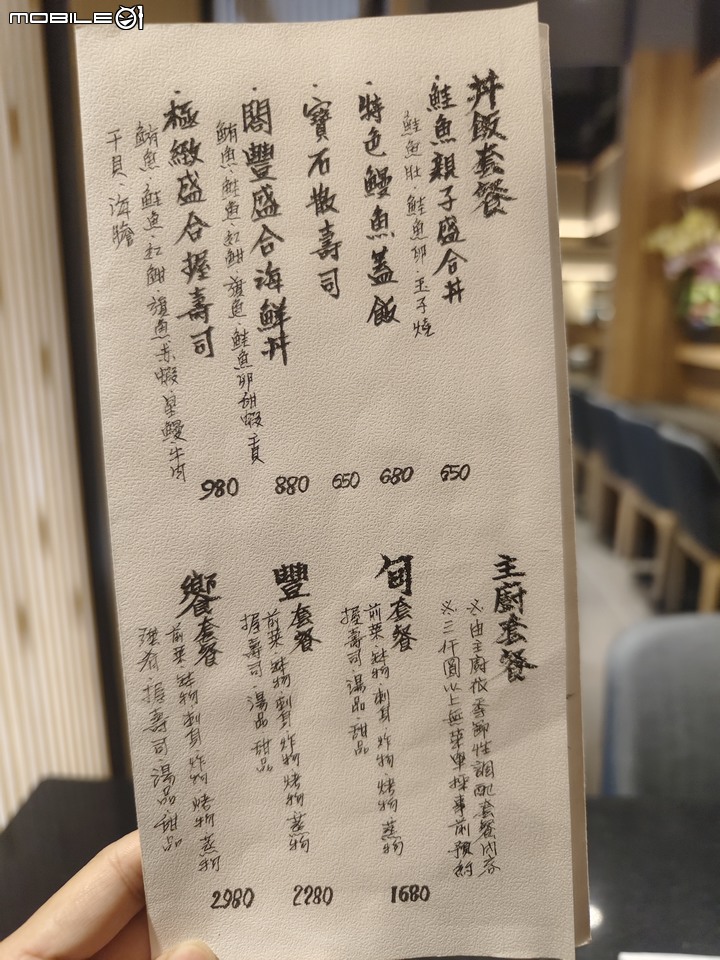 MOBILE01
丼飯套餐
·鮭魚親子盛合丼
鮭魚肚·鮭魚卵·玉子燒
650
·特色鰻魚蓋飯
680
·寶石散壽司
650
·閤豐盛合海鮮丼
鮪魚·鮭魚·紅魽·旗魚·鮭魚卵·甜蝦·干貝
880
·極緻盛合握壽司
鮪魚·鮭魚·紅魽·旗魚·赤蝦·星鰻·牛肉
干貝·海膽
980
主廚套餐
※由主廚依季節性調配套餐內容
※三仟圓以上無菜單採事前預約
旬套餐
前菜·缽物·刺身·炸物·烤物·蒸物
握壽司·湯品·甜品
1680
豐套餐
前菜·缽物·刺身·炸物·烤物·蒸物
握壽司·湯品·甜品
2280
饗套餐
前菜·缽物·刺身·炸物·烤物·蒸物
強肴·握壽司·湯品·甜品
2980